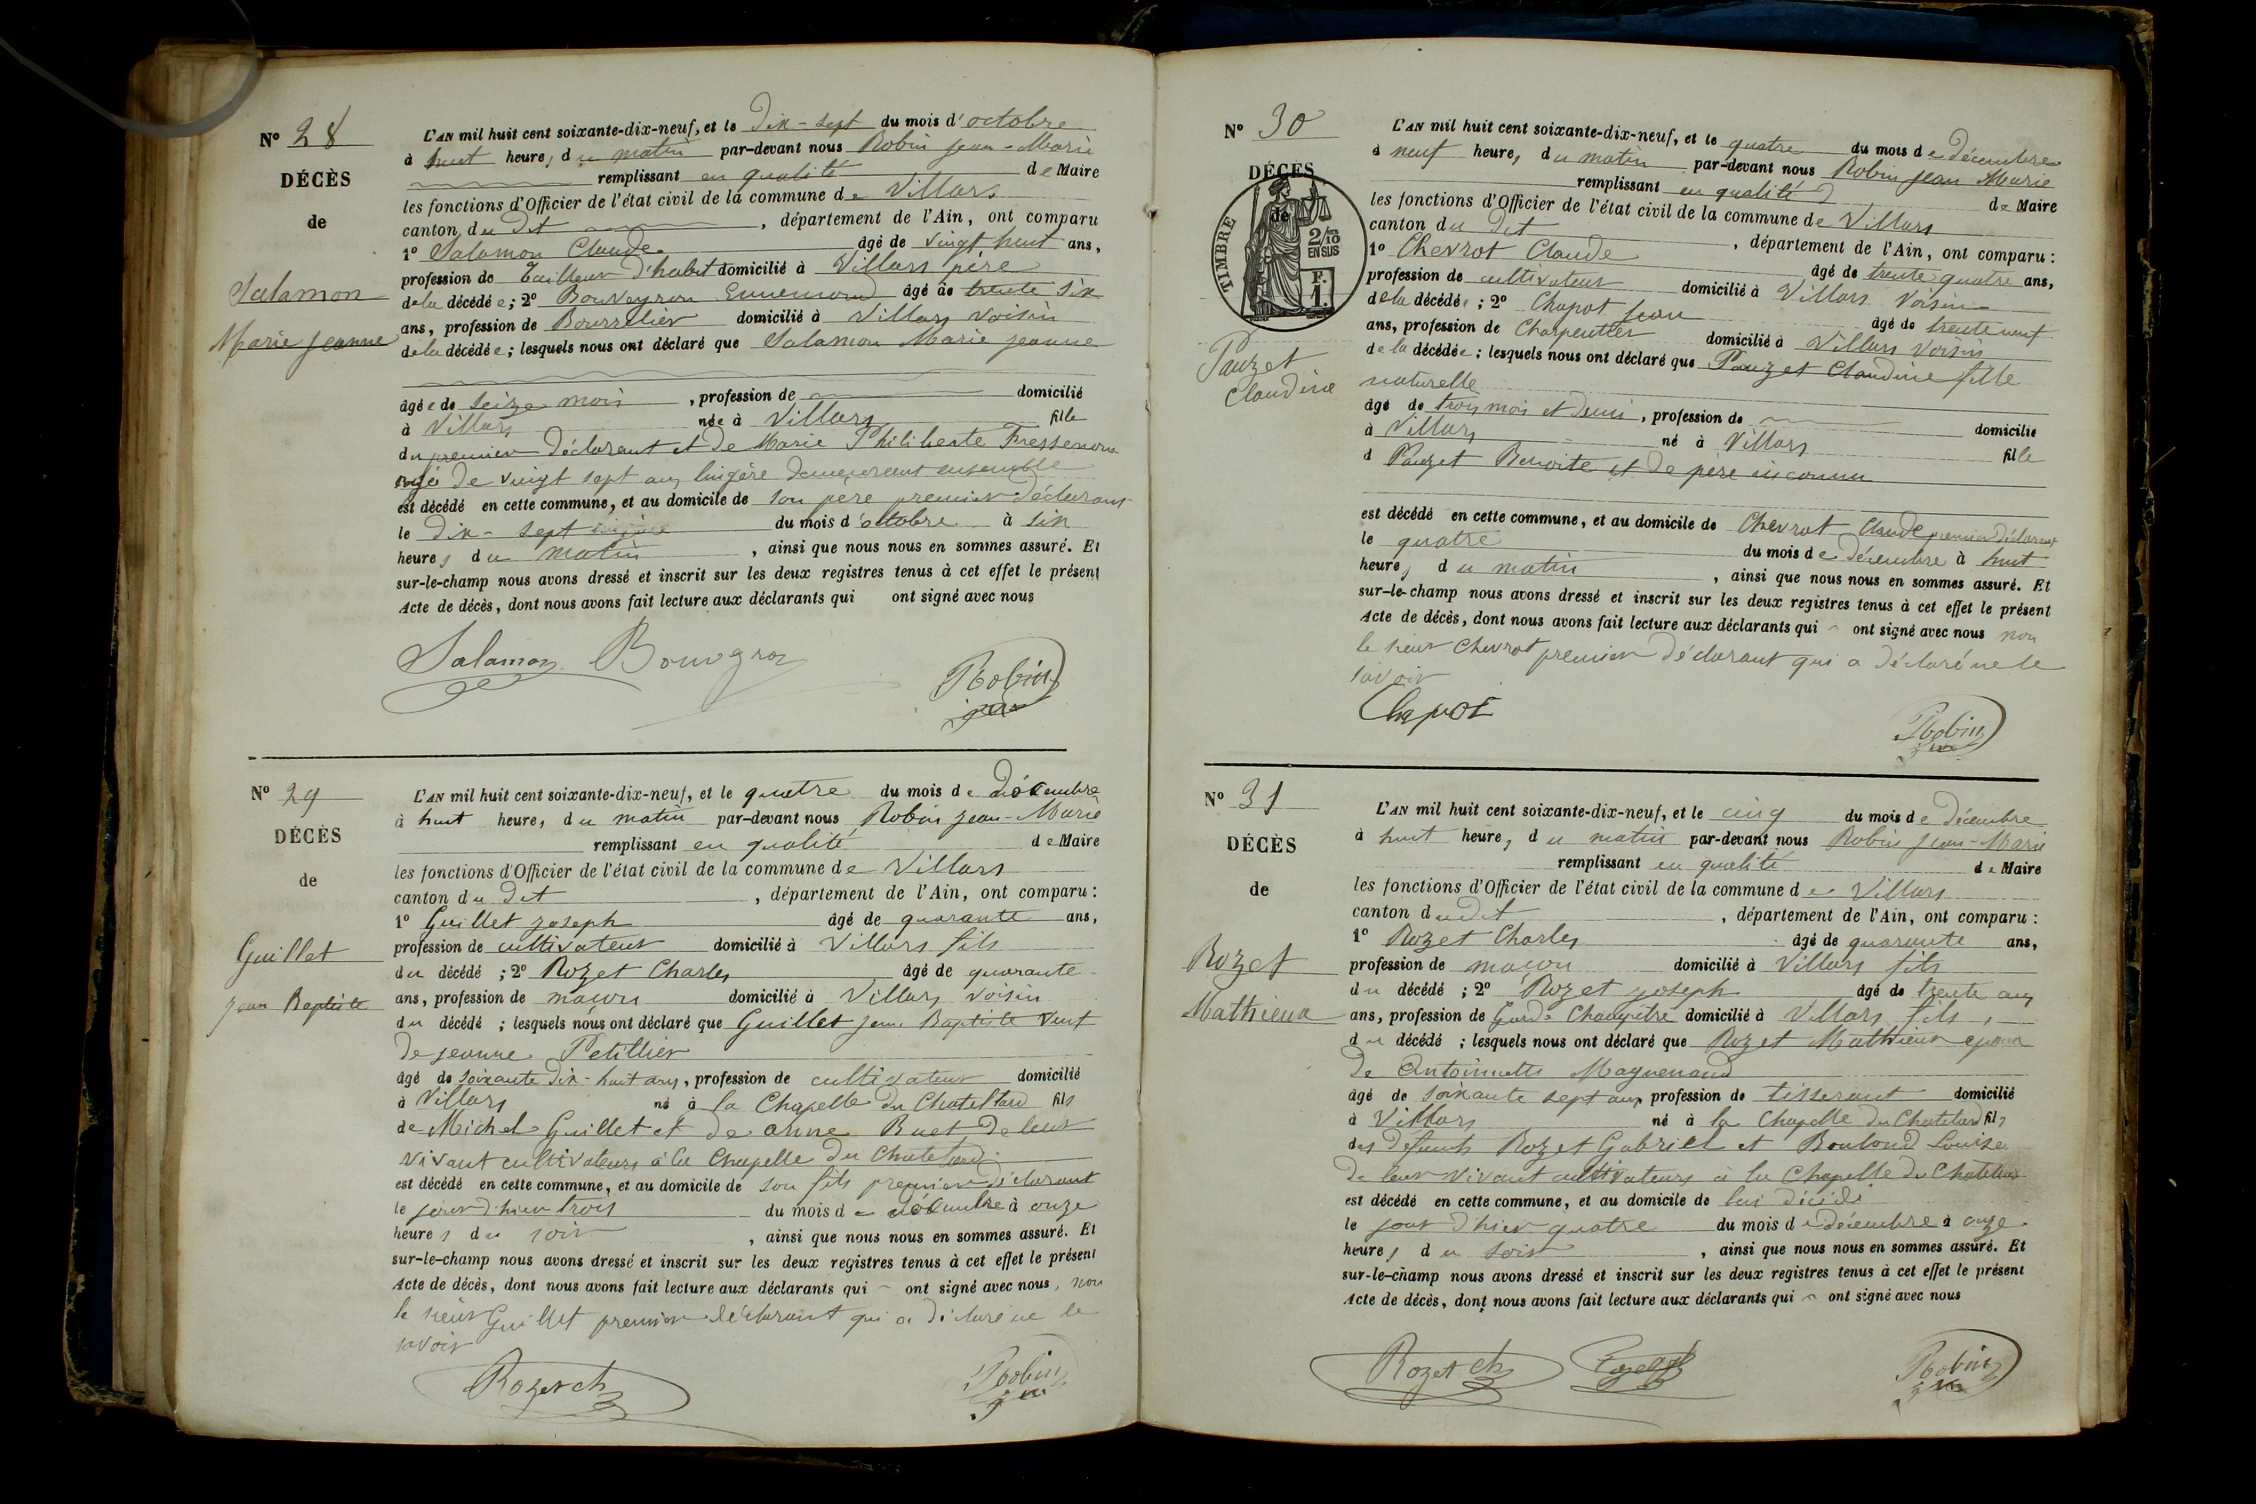 N° 28
DÉCÈS
de
Salamon
Marie Jeanne
L'AN mil huit cent soixante-dix-neuf, et le Dix-sept du mois d'octobre
à huit heures du matin par-devant nous Robin Jean-Marie
remplissant en qualité de Maire
les fonctions d'Officier de l'état civil de la commune de Villars
canton du Dit, département de l'Ain, ont comparu
1° Salamon Claude âgé de vingt huit ans,
profession de Tailleur d'habit domicilié à Villars père
de la décédée; 2° Bouveyron Ennemond âgé de trente six
ans, profession de Bourrelier domicilié à Villars voisin
de la décédée; lesquels nous ont déclaré que Salamon Marie Jeanne
âgée de seize mois, profession de domicilié
à Villars née à Villars fille
du premier déclarant et de Marie Philiberte Fressenon
âgée de vingt sept ans lingère demeurant ensemble
est décédé en cette commune, et au domicile de son père premier déclarant
le dix-sept du mois d'octobre à six
heures du matin, ainsi que nous nous en sommes assuré. Et
sur-le-champ nous avons dressé et inscrit sur les deux registres tenus à cet effet le présent
Acte de décès, dont nous avons fait lecture aux déclarants qui ont signé avec nous
Salamon Bouvgron
Robin
N° 29
DÉCÈS
de
Guillet
Jean Baptiste
L'AN mil huit cent soixante-dix-neuf, et le quatre du mois de Décembre
à huit heures, du matin par-devant nous Robin Jean-Marie
remplissant en qualité de Maire
les fonctions d'Officier de l'état civil de la commune de Villars
canton du Dit, département de l'Ain, ont comparu :
1° Guillet Joseph âgé de quarante ans,
profession de cultivateur domicilié à Villars fils
du décédé ; 2° Rozet Charles âgé de quarante
ans, profession de maçon domicilié à Villars voisin
du décédé ; lesquels nous ont déclaré que Guillet Jean Baptiste veuf
de Jeanne Petillier
âgé de soixante dix-huit ans, profession de cultivateur domicilié
à Villars né à la Chapelle du Chatellard fils
de Michel Guillet et de anne Buet De leur
vivant cultivateurs à la Chapelle du Chatelard
est décédé en cette commune, et au domicile de son fils premier déclarant
le jour d'hier trois du mois de décembre à onze
heures du soir, ainsi que nous nous en sommes assuré. Et
sur-le-champ nous avons dressé et inscrit sur les deux registres tenus à cet effet le présent
Acte de décès, dont nous avons fait lecture aux déclarants qui ont signé avec nous, non
le sieur Guillet premier déclarant qui a déclaré ne le
savoir
Rozet ch
Robin
N° 30
DÉCÈS
de
TIMBRE
2/10
EN SUS
F.
1.
Pauzet
Claudine
L'AN mil huit cent soixante-dix-neuf, et le quatre du mois de décembre
à neuf heures, du matin par-devant nous Robin Jean Marie
remplissant en qualité de Maire
les fonctions d'Officier de l'état civil de la commune de Villars
canton du Dit, département de l'Ain, ont comparu :
1° Chevrot Claude âgé de trente quatre ans,
profession de cultivateur domicilié à Villars voisin
de la décédée ; 2° Chapot Jean âgé de trente neuf
ans, profession de Charpentier domicilié à Villars voisin
de la décédée ; lesquels nous ont déclaré que Pauzet Claudine fille
naturelle
âgé de trois mois et demi, profession de domicilié
à Villars né à Villars fille
d Pauzet Benoite et de père inconnu
est décédé en cette commune, et au domicile de Chevrot Claude premier déclarant
le quatre du mois de décembre à huit
heures du matin, ainsi que nous nous en sommes assuré. Et
sur-le-champ nous avons dressé et inscrit sur les deux registres tenus à cet effet le présent
Acte de décès, dont nous avons fait lecture aux déclarants qui ont signé avec nous non
le sieur Chevrot premier déclarant qui a déclaré ne le
savoir
Chapot
Robin
N° 31
DÉCÈS
de
Rozet
Mathieux
L'AN mil huit cent soixante-dix-neuf, et le cinq du mois de décembre
à huit heures, du matin par-devant nous Robin Jean-Marie
remplissant en qualité de Maire
les fonctions d'Officier de l'état civil de la commune de Villars
canton du dit, département de l'Ain, ont comparu :
1° Rozet Charles âgé de quarante ans,
profession de maçon domicilié à Villars fils
du décédé ; 2° Rozet Joseph âgé de trente ans
ans, profession de Garde Champêtre domicilié à Villars fils,
du décédé ; lesquels nous ont déclaré que Rozet Mathieux époux
De Antoinette Maguenaud
âgé de soixante sept ans profession de tisserant domicilié
à Villars né à la Chapelle du Chatelard fils
des défunts Rozet Gabriel et Bouloud Louise
De leur vivant cultivateurs à la Chapelle du Chatelard
est décédé en cette commune, et au domicile de lui décédé
le jour d'hier quatre du mois de décembre à onze
heures du soir, ainsi que nous nous en sommes assuré. Et
sur-le-champ nous avons dressé et inscrit sur les deux registres tenus à cet effet le présent
Acte de décès, dont nous avons fait lecture aux déclarants qui ont signé avec nous
Rozet ch
Robin